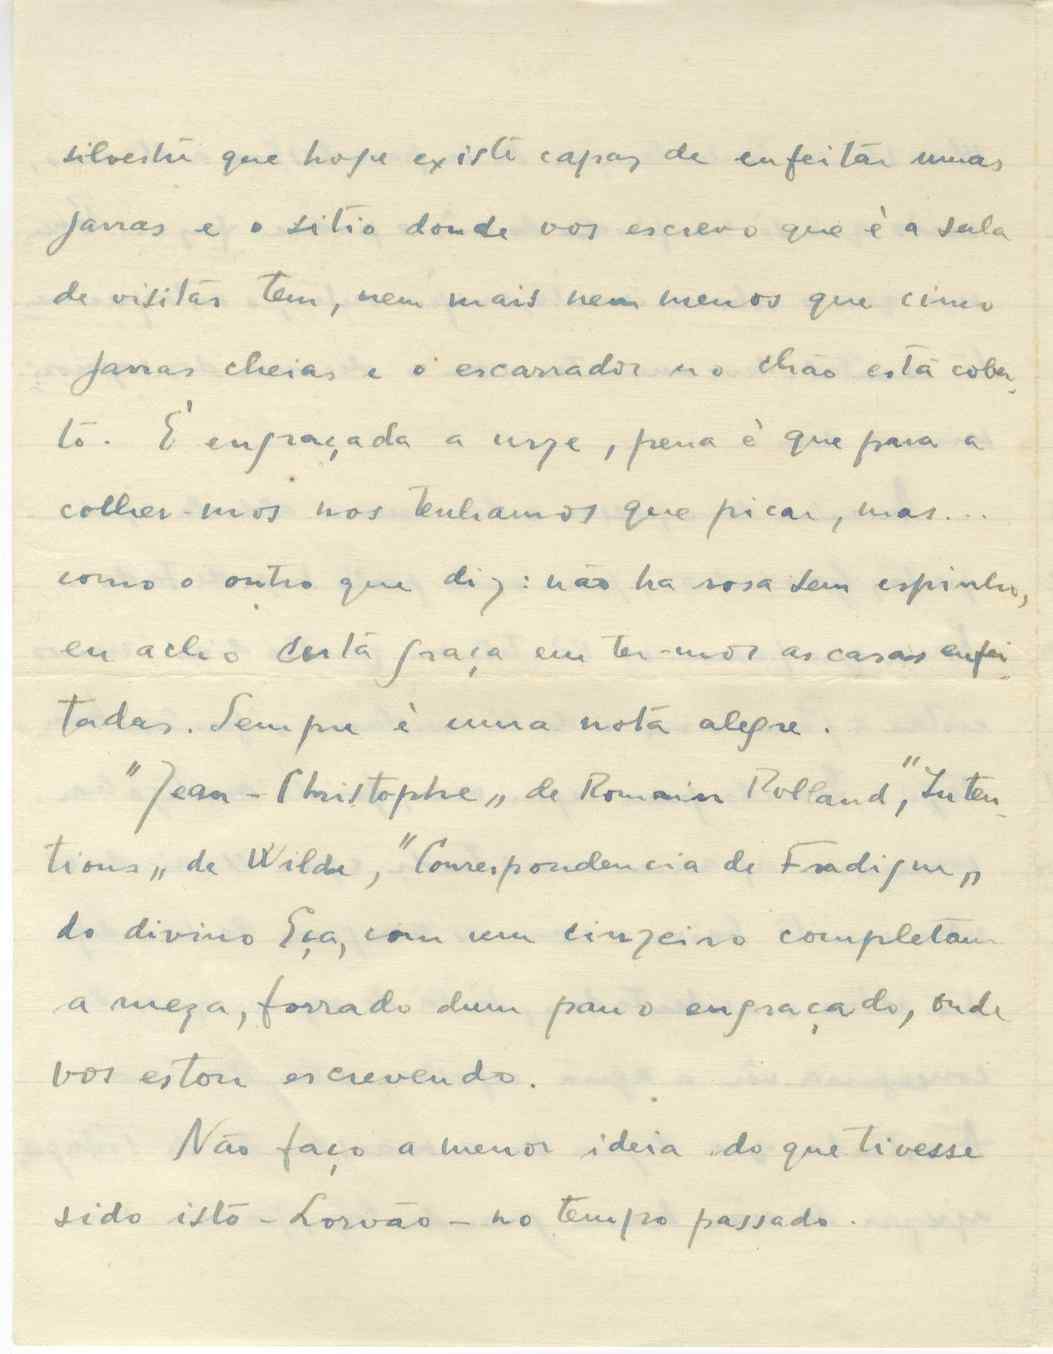 silvestre que hoje existe capaz de enfeitar umas
jarras e o sitio donde vos escrevo que è a sala
de visitas tem, nem mais nem menos que cinco
jarras cheias e o escarrador no chão está cober-
to. É engraçada a urze, pena è que para a
colher-mos nos tenhamos que picar, mas...
como o outro que diz: não ha rosa sem espinho,
eu acho certa graça em ter-mos as casas enfei-
tadas. Sempre è uma nota alegre.
"Jean-Christophe„ de Romain Rolland, "Inten-
tions„ de Wilde, "Correspondencia de Fradique„
do divino Eça, com um cinzeiro completam
a meza, forrado dum pano engraçado, onde
vos estou escrevendo.
Não faço a menor ideia do que tivesse
sido isto - Lorvão - no tempo passado.